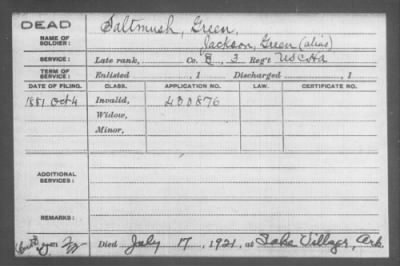 DEAD
NAME OF SOLDIER: Saltmush, Green,
Jackson, Green (alias)
SERVICE: Late rank, Co. B, 3 Reg't U S C H A
TERM OF SERVICE: Enlisted , 1 Discharged , 1
DATE OF FILING. CLASS. APPLICATION NO. LAW. CERTIFICATE NO.
1881 Oct 4 Invalid, 430876
Widow,
Minor,
ADDITIONAL SERVICES:
REMARKS:
Died July 17, 1921, at Lake Village, Ark.